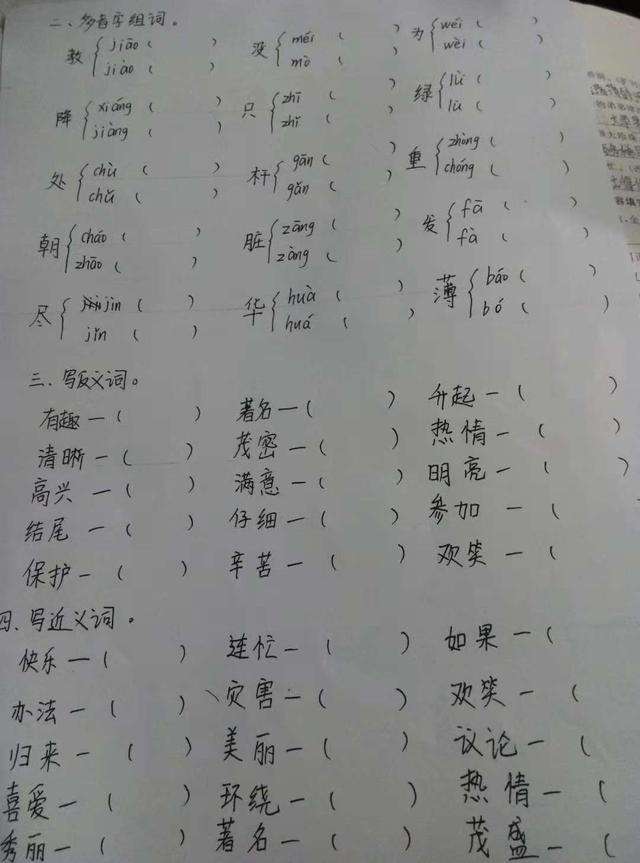 二、多音字组词。
教 { jiāo ( ) jiào ( ) 没 { méi ( ) mò ( ) 为 { wéi ( ) wèi ( )
降 { xiáng ( ) jiàng ( ) 只 { zhī ( ) zhǐ ( ) 绿 { lǜ ( ) lù ( )
处 { chù ( ) chǔ ( ) 杆 { gān ( ) gǎn ( ) 重 { zhòng ( ) chóng ( )
朝 { cháo ( ) zhāo ( ) 脏 { zāng ( ) zàng ( ) 发 { fā ( ) fà ( )
尽 { jìn ( ) jǐn ( ) 华 { huà ( ) huá ( ) 薄 { báo ( ) bó ( )
三、写反义词。
有趣—( ) 著名—( ) 升起—( )
清晰—( ) 茂密—( ) 热情—( )
高兴—( ) 满意—( ) 明亮—( )
结尾—( ) 仔细—( ) 参加—( )
保护—( ) 辛苦—( ) 欢笑—( )
四、写近义词。
快乐—( ) 连忙—( ) 如果—(
办法—( ) 灾害—( ) 欢笑—(
归来—( ) 美丽—( ) 议论—(
喜爱—( ) 环绕—( ) 热情—(
秀丽—( ) 著名—( ) 茂盛—(